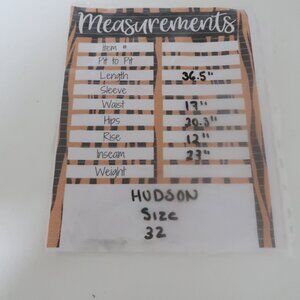 Measurements
Item #
Pit to Pit
Length 36.5"
Sleeve
Waist 17"
Hips 20.0"
Rise 12"
Inseam 27"
Weight
HUDSON
Size
32